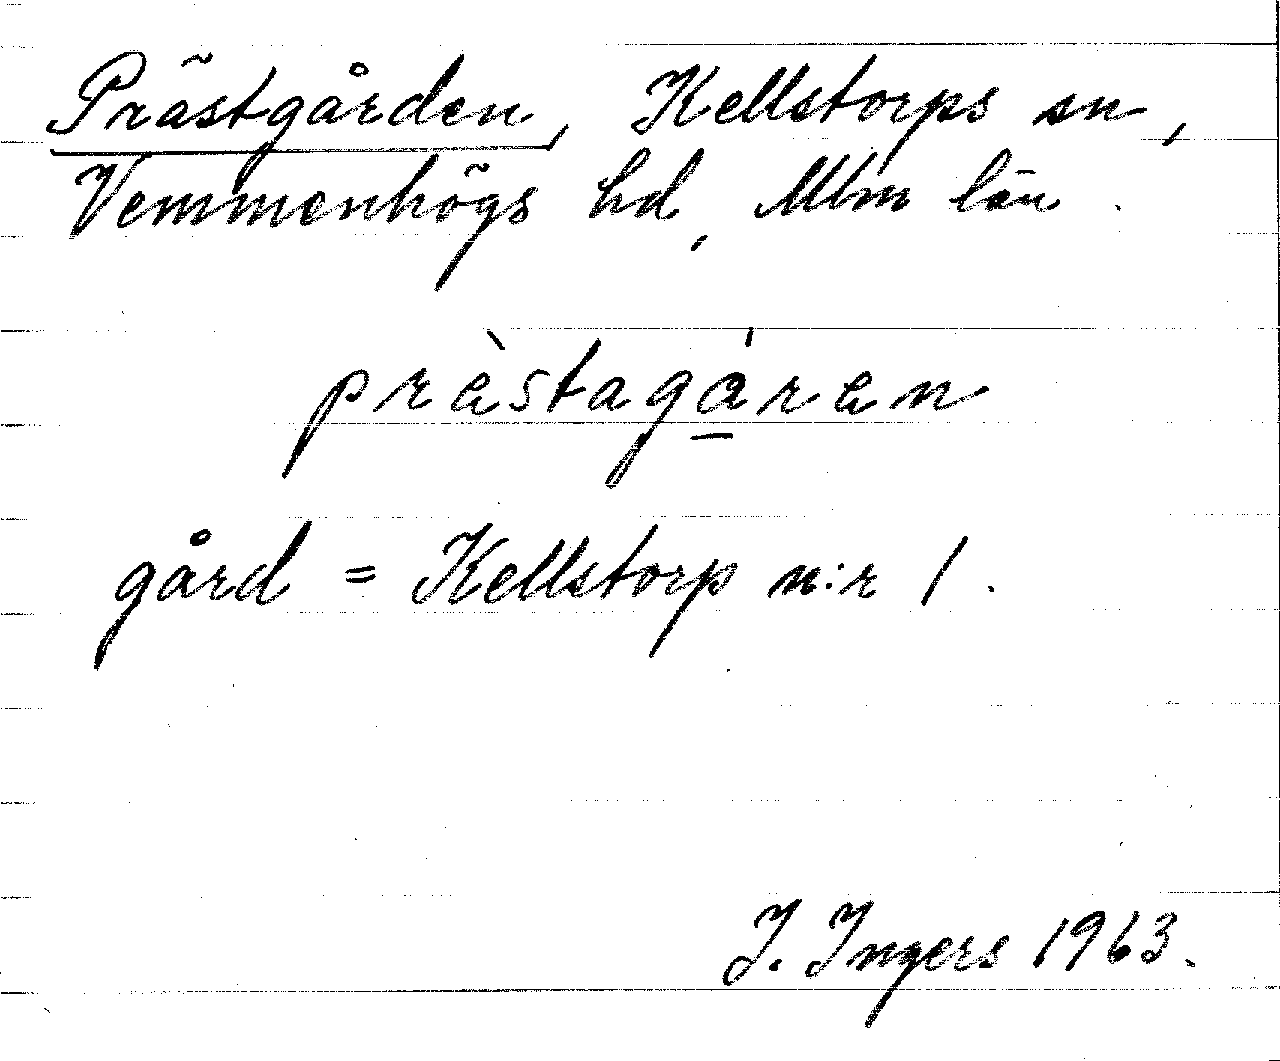 Prästgården, Kellstorps sn,
Vemmenhögs hd, Mlm län.
prèstagá̱ren
gård = Kellstorp n:r 1.
I. Ingers 1963.